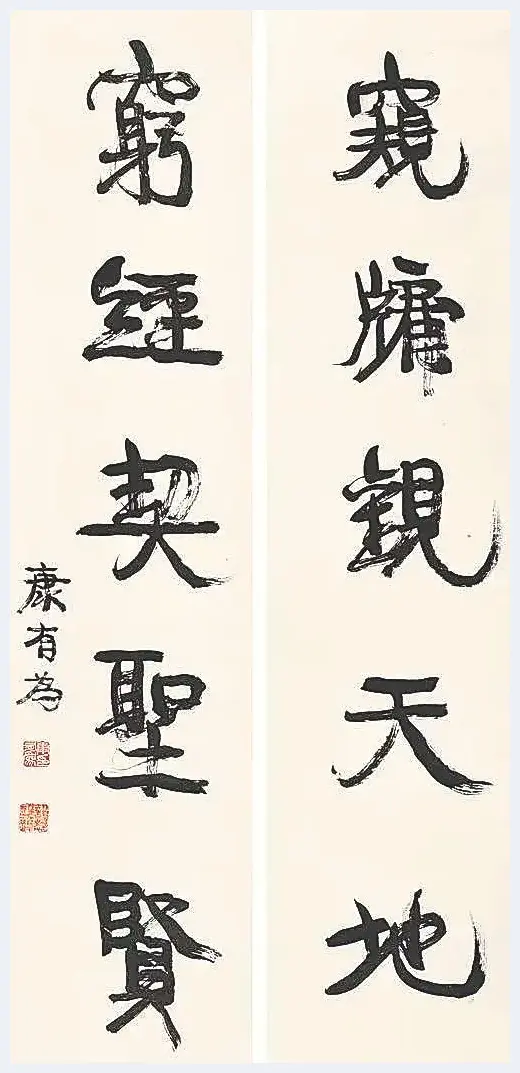 窺牖觀天地
窮經契聖賢
康有為